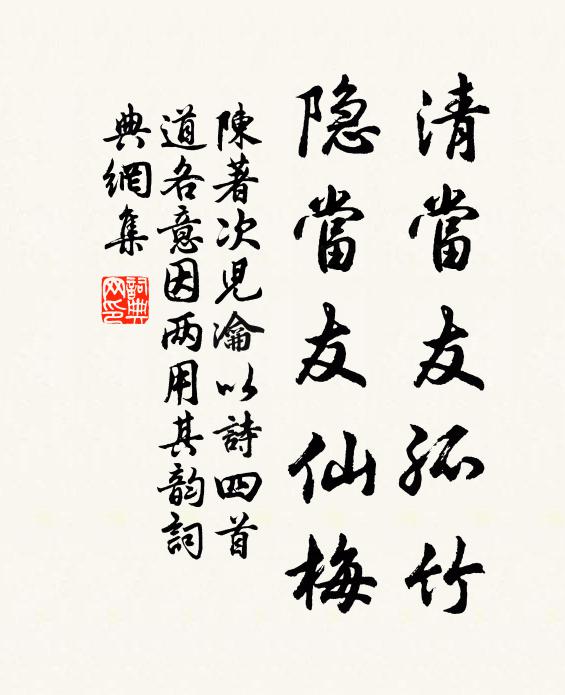 清當友孤竹
隐當友仙梅
陳著次児瀹以詩四首
道各意因两用其韵詞
典網集
詞典网印